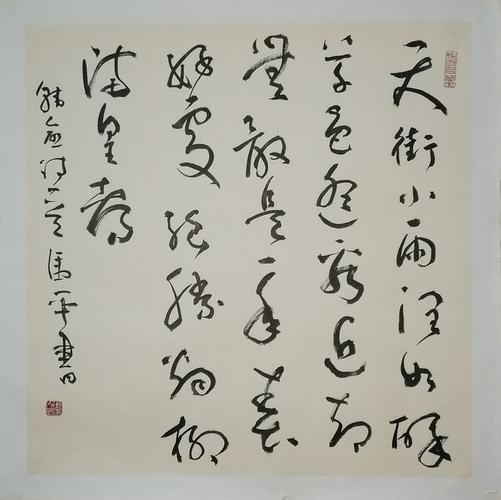 天街小雨潤如酥
草色遙看近却
無最是一年春
好處絕勝烟柳
滿皇都
韓愈詩 平書